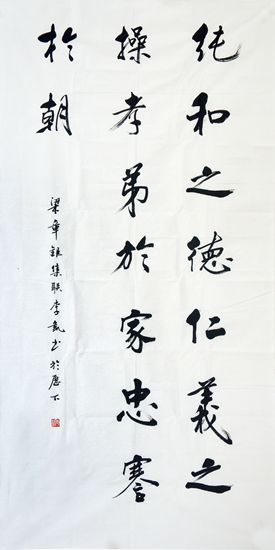 纯和之德仁義之
操孝弟於家忠謇
於朝
梁章鉅集联李凯书於历下